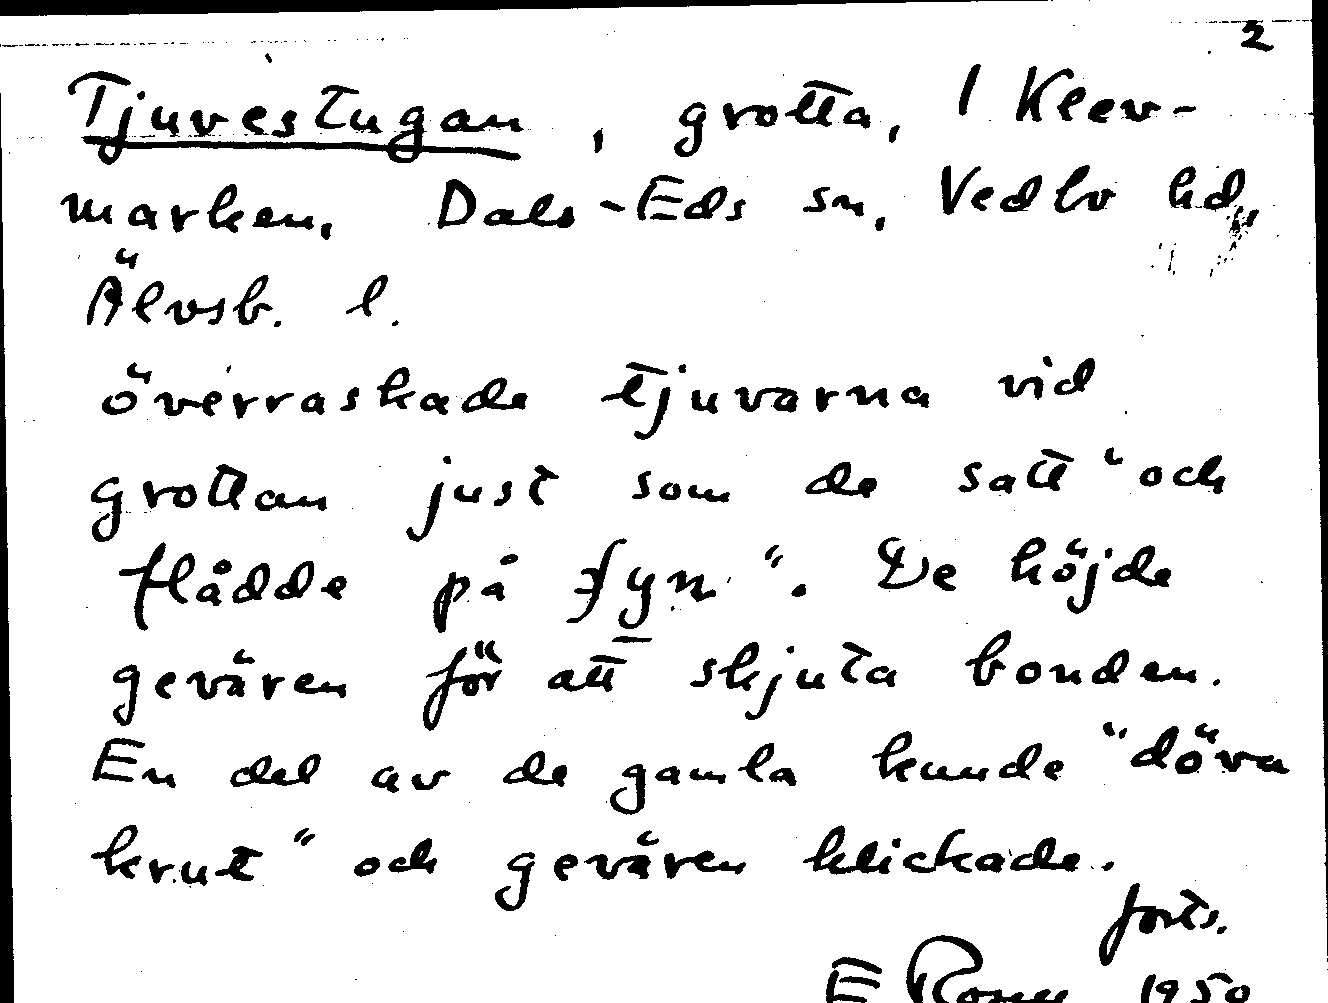 2
Tjuvestugan, grotta, 1 Klev-
marken, Dals-Eds sn, Vedbo hd,
Älvsb. l.
överraskade tjuvarna vid
grottan just som de satt "och
flådde på fyn". De höjde
gevären för att skjuta bonden.
En del av de gamla kunde "döva
krut" och gevären klickade.
forts.
E 1950